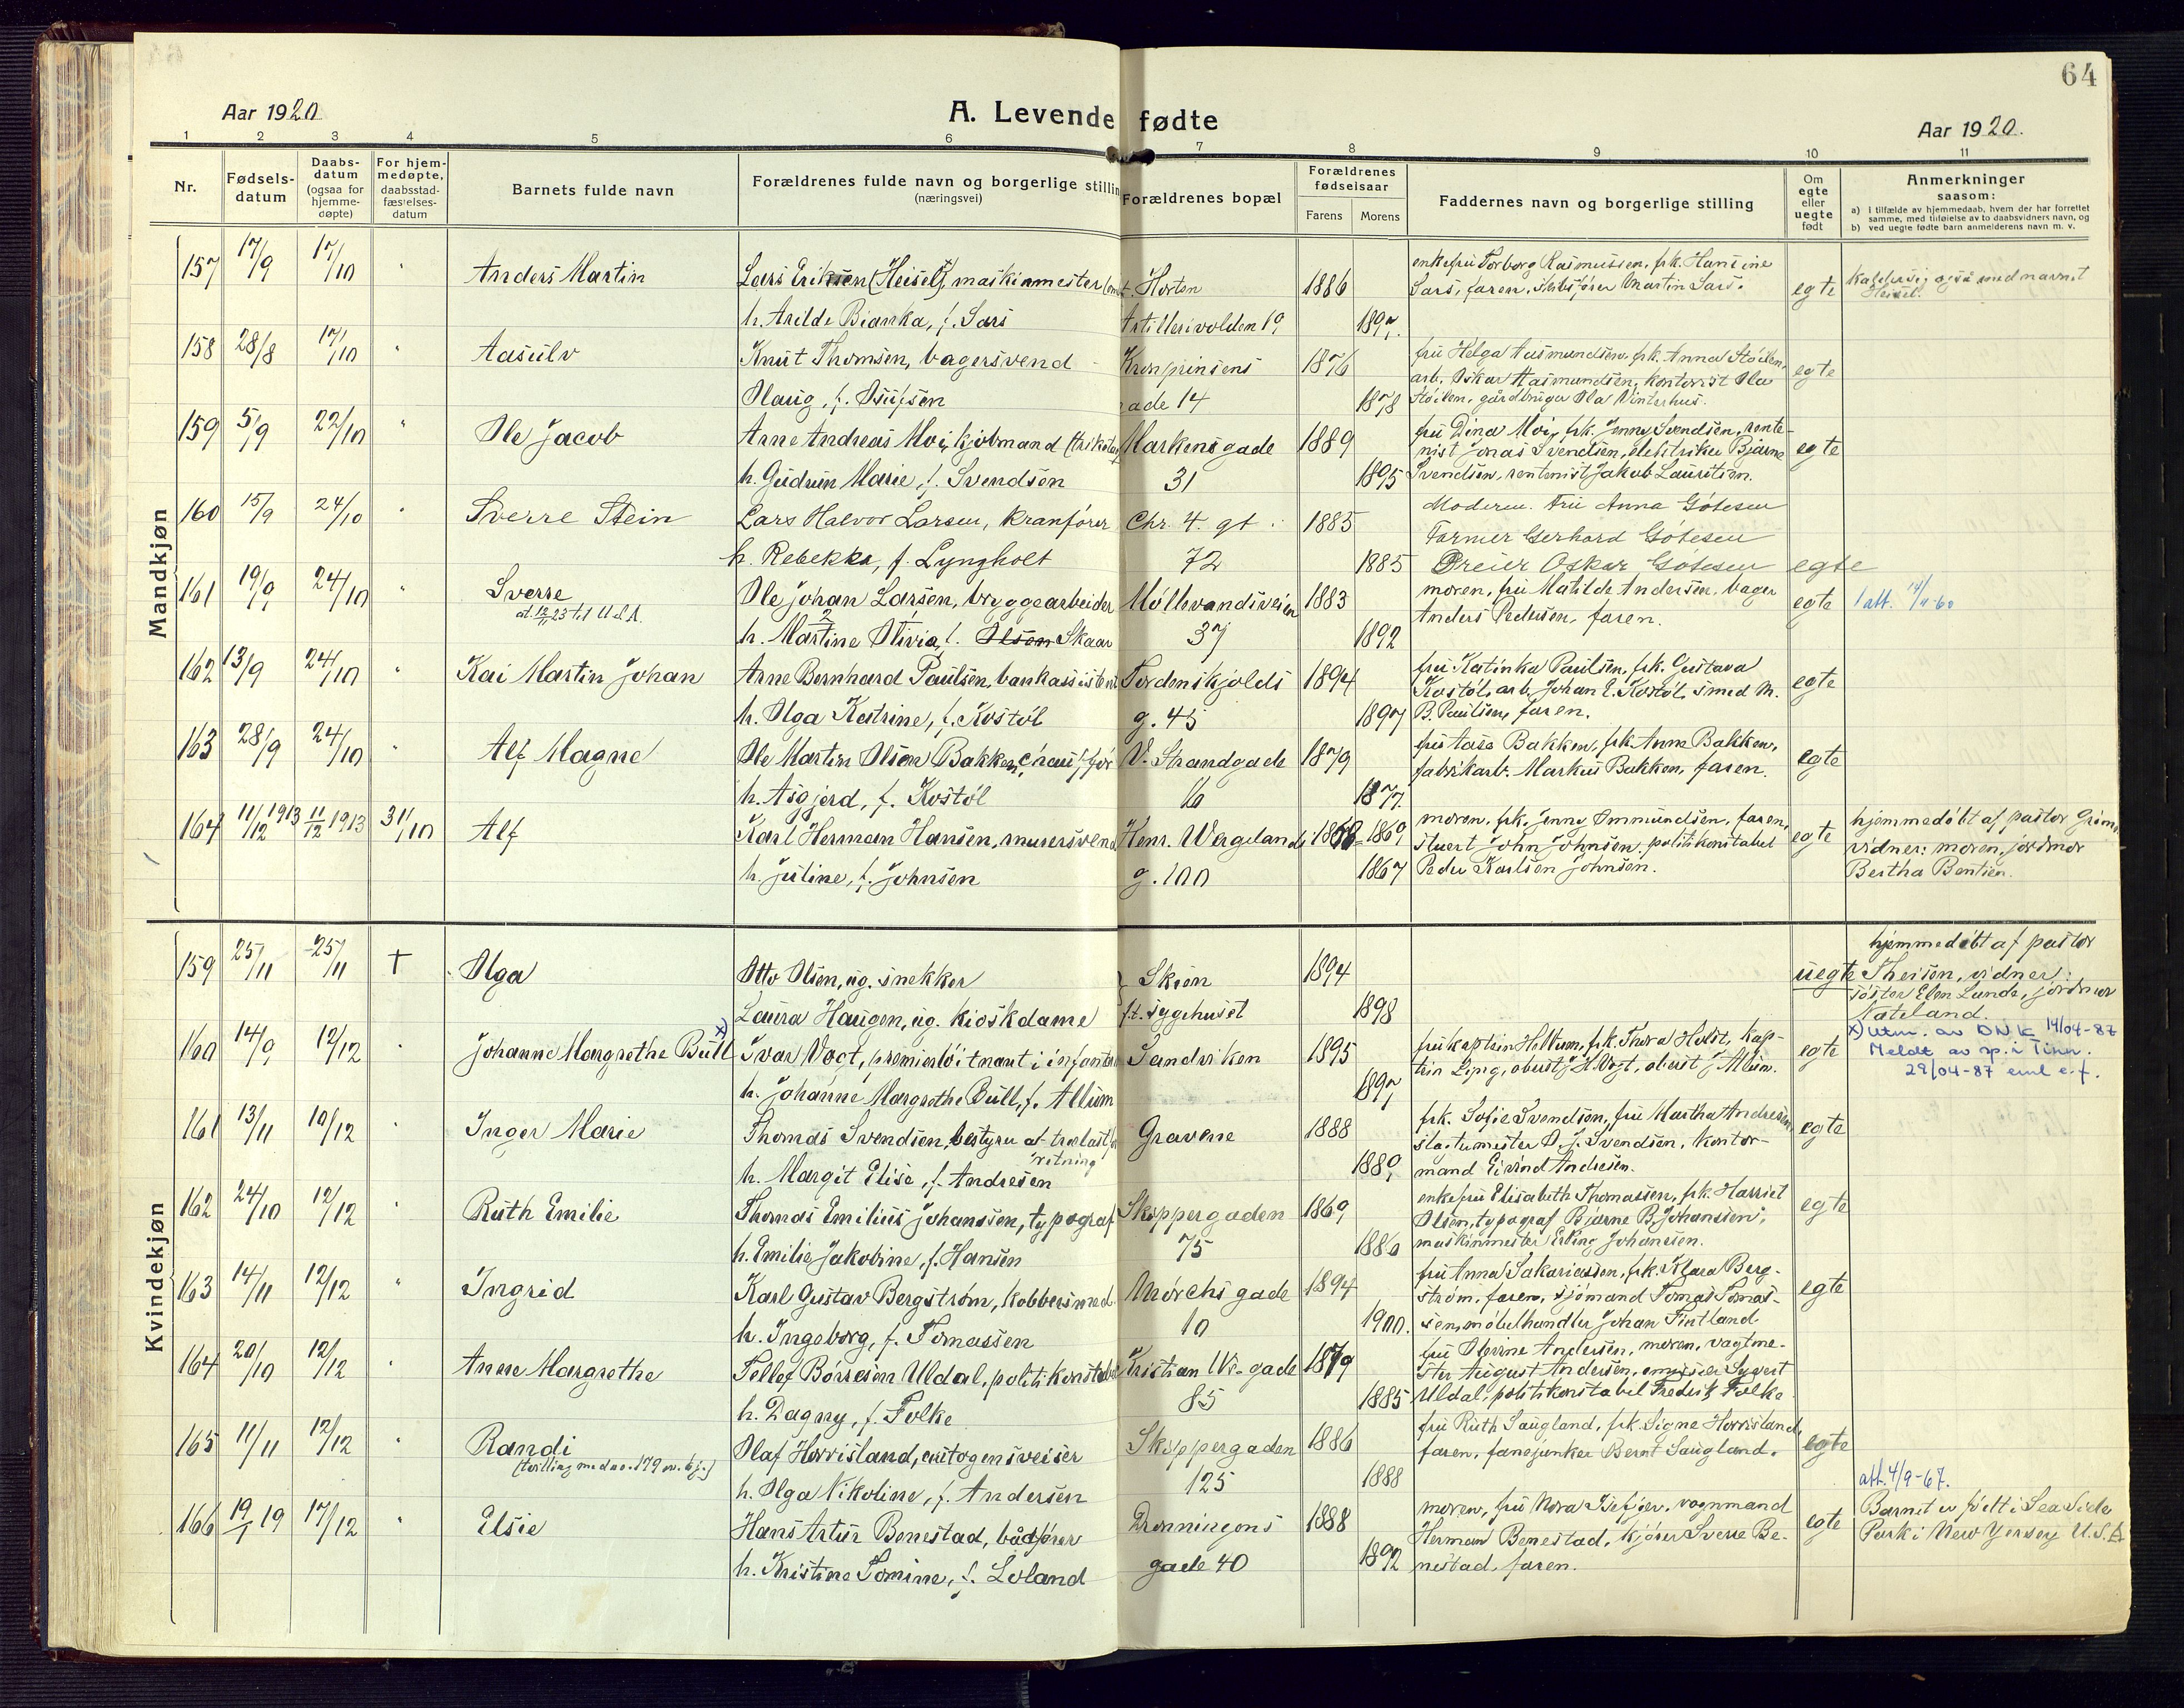 64
Aar 1920
A. Levende fødte
Aar 1920.
1 2 3 4 5 6 7 8 9 10 11
Nr.
Fødsels-
datum
Daabs-
datum
(ogsaa for
hjemme-
døpte)
For hjem-
medøpte,
daabsstad-
fæstelses-
datum
Barnets fulde navn
Forældrenes fulde navn og borgerlige stilling
(næringsvei)
Forældrenes bopæl
Forældrenes
fødselsaar
Farens Morens
Faddernes navn og borgerlige stilling
Om
egte
eller
uegte
født
Anmerkninger
saasom:
a) i tilfælde av hjemmedaab, hvem der har forrettet
samme, med tilføielse av to daabsvidners navn, og
b) ved uegte fødte barn anmelderens navn m. v.
Mandkjøn
157 17/9 17/10 " Anders Martin
Lars Eriksen (Heisel), maskinmester
h. Arilde Bianka, f. Sars
Horten
Artillerivolden 19
1886
1897
enkefru Torborg Rasmussen, frk. Hansine
Sars, faren, skibsfører Martin Sars.
egte
kalder sig også med navnet
Heisel.
158 28/8 17/10 " Aasulv
Knut Thomsen, bagersvend
Olaug, f. Osufsen
Kronprinsens
gade 14
1876
1878
fru Helga Aasmundsen, frk. Anna Støilen,
arb. Oskar Aasmundsen, kontorist Ola
Støilen, gårdbruger Ola Vinterhus.
egte
159 5/9 22/10 " Ole Jacob
Arne Andreas Moi, kjøbmand
h. Gudrun Marie, f. Svendsen
Markensgade
31
1889
1895
fru Dina Moi, frk. Jenny Svendsen, rente-
nist Jonas Svendsen, elektriker Bjarne
Svendsen, rentenist Jakob Lauritsen.
egte
160 15/9 24/10 " Sverre Stein
Lars Halvor Larsen, Kranfører
h. Rebekka, f. Lyngholt
Chr. 4. gt.
72
1885
1885
Moderen. Fru Anna Gøtesen
Farmer Gerhard Gøtesen
Dreier Oskar Gøtesen
egte
161 19/9 24/10 " Sverre
at. 12/11 23 til U.S.A.
Ole Johan Larsen, bryggearbeider
h. Martine Olivia, f. Olsen Skaar
Møllevandsveien
37
1883
1892
moren, fru Matilde Andersen, bager
Anders Pedersen, faren.
egte
162 13/9 24/10 " Kai Martin Johan
Arne Bernhard Paulsen, bankassistent
h. Olga Katrine, f. Kostøl
Tordenskjolds
g. 45
1894
1897
fru Katinka Paulsen, frk. Gustava
Kostøl, arb. Johan E. Kostøl, smed M.
B. Paulsen, faren.
egte
163 28/9 24/10 " Alf Magne
Ole Martin Olsen Bakken, chauffør
h. Asgjerd, f. Kostøl
V. Strandgade
16
1879
1877
fru Aase Bakken, frk. Anna Bakken,
fabrikarb. Markus Bakken, faren.
egte
164 11/12 1913 11/12 1913 31/10 Alf
Karl Herman Hansen, murersvend
h. Juline, f. Johnsen
Henr. Wergelands
g. 100
1869
1867
moren, frk. Jenny Ommundsen, faren,
stuert John Johnsen, politikonstabel
Peder Karlsen Johnsen.
egte
hjemmedøbt af pastor Grim.
vidner: moren, jordmor
Bertha Bentsen.
Kvindekjøn
159 25/11 25/11 † Olga
Otto Olsen, ug. snekker
Laura Haugen, ug. kioskdame
Skien
f.t. sygehuset
1894
1898
uegte
hjemmedøbt af pastor
Theisen, vidner:
søster Elen Lunde, jordmor
Nateland.
160 14/9 12/12 Johanne Margrethe Bull x)
Ivar Vogt, premierløitnant i infanteri
h. Johanne Margrethe Bull, f. Allum
Sandviken
1895
1897
egte
x) utm. av DNK 14/04-87
Meldt av sp. i Tinn.
29/04-87
161 13/11 10/12 " Inger Marie
Thomas Svendsen, bestyrer af trælastfor
retning
h. Margit Elise, f. Andresen
Gravene
1888
1889
frk. Sofie Svendsen, fru Martha Andresen,
slagtermester O. J. Svendsen, kontor-
mand Eivind Andresen.
egte
162 24/10 12/12 " Ruth Emilie
Thomas Emilius Johanssen, typograf
h. Emilie Jakobine, f. Hansen
Skippergaden
75
1869
1886
enkefru Elisabeth Thomassen, frk. Harriet
Olsen, typograf Bjarne B. Johanssen,
maskinmester Erling Johansen.
egte
163 14/11 12/12 " Ingrid
Karl Gustav Bergstrøm, kobbersmed
h. Ingeborg, f. Tomassen
Mørchs gade
10
1894
1900.
fru Anna Sakariassen, frk. Klara Berg-
strøm, faren, sjømand Tomas Tomas-
sen, møbelhandler Johan Fintland
egte
164 20/10 12/12 " Anne Margrethe
Tellef Børresen Uldal, politikonstabel
h. Dagny, f. Folke
Kristian IVs-gade
85
1879
1885
fru Olevine Andersen, moren, vagtme-
ster August Andersen, emissær Sygert
Uldal, politikonstabel Fredrik Folke
165 11/11 12/12 " Randi
(tvilling med no. 179 m. kj.)
Olaf Horrisland, autogensveiser
h. Olga Nikoline, f. Andersen
Skippergaden
125
1886
1888
fru Ruth Saugland, frk. Signe Horrisland,
faren, fanejunker Bernt Saugland.
egte
att. 4/9-67.
166 19/1 19 17/12 " Elsie
Hans Artur Benestad, bådfører
h. Kristine Tomine, f. Loland
Dronningens
gade 40
1888
1892
moren, fru Nora Isefjer, vognmand
Herman Benestad, kjører Sverre Be-
nestad, faren.
egte
Barnet er født i Sea Side
Park i New Yersey U.S.A